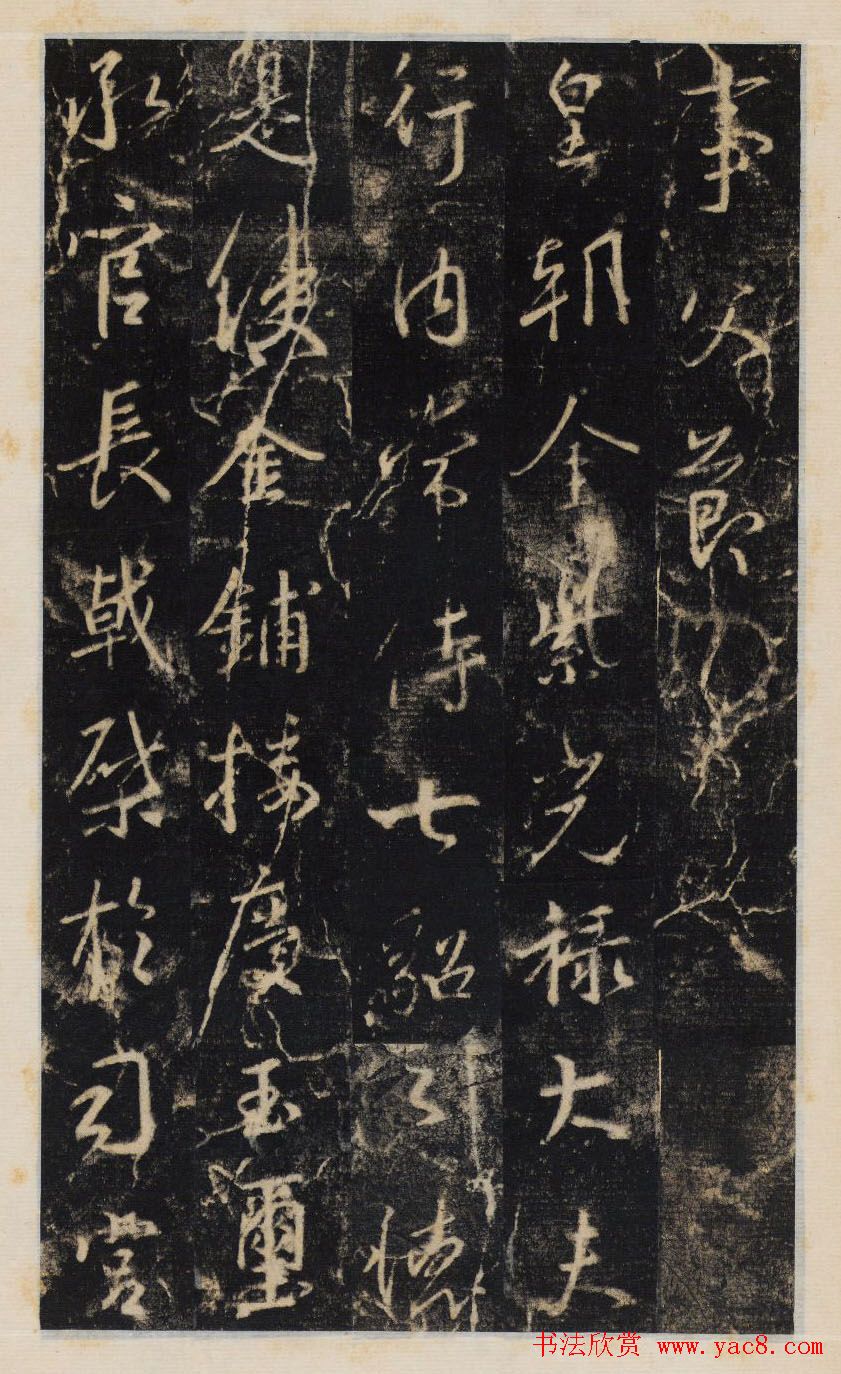 事父節
皇朝金紫光祿大夫
行內常侍七貂引
使金鋪接慶玉璽
承官長戟棨於司宮
书法欣赏 www.yac8.com